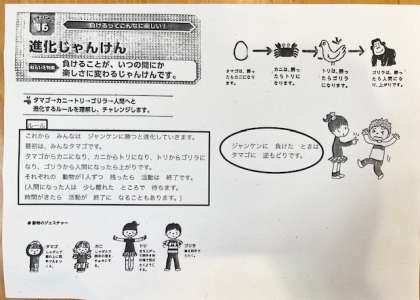 16
負けるってこんなに楽しい!
進化じゃんけん
負けることが、いつの間にか
楽しさに変わるじゃんけんです。
タマゴ→カニ→トリ→ゴリラ→人間へと
進化するルールを理解し、チャレンジします。
ルール
これから みんなは ジャンケンに勝つと進化していきます。
最初は、みんなタマゴです。
タマゴからカニになり、カニからトリになり、トリからゴリラに
なり、ゴリラから人間になったら上がりです。
それぞれの 動物が1人ずつ 残ったら 活動は 終了です。
(人間になった人は 少し離れた ところで 待ちます。
時間がきたら 活動が 終了に なることもあります。)
タマゴは、勝っ
たらカニになり
ます。
カニは、勝っ
たらトリにな
ります。
トリは、勝っ
たらゴリラに
なります。
ゴリラは、勝っ
たら人間にな
り、上がりです。
ジャンケンに 負けた ときは
タマゴに 逆もどりです。
動物のジェスチャー
タマゴ
カニ
トリ
ゴリラ